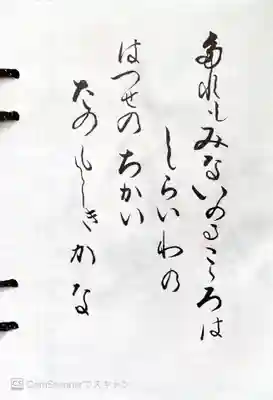 多れもみないのるこころは
しらいわの
はつせのちかい
たのもしきかな
CS CamScannerでスキャン